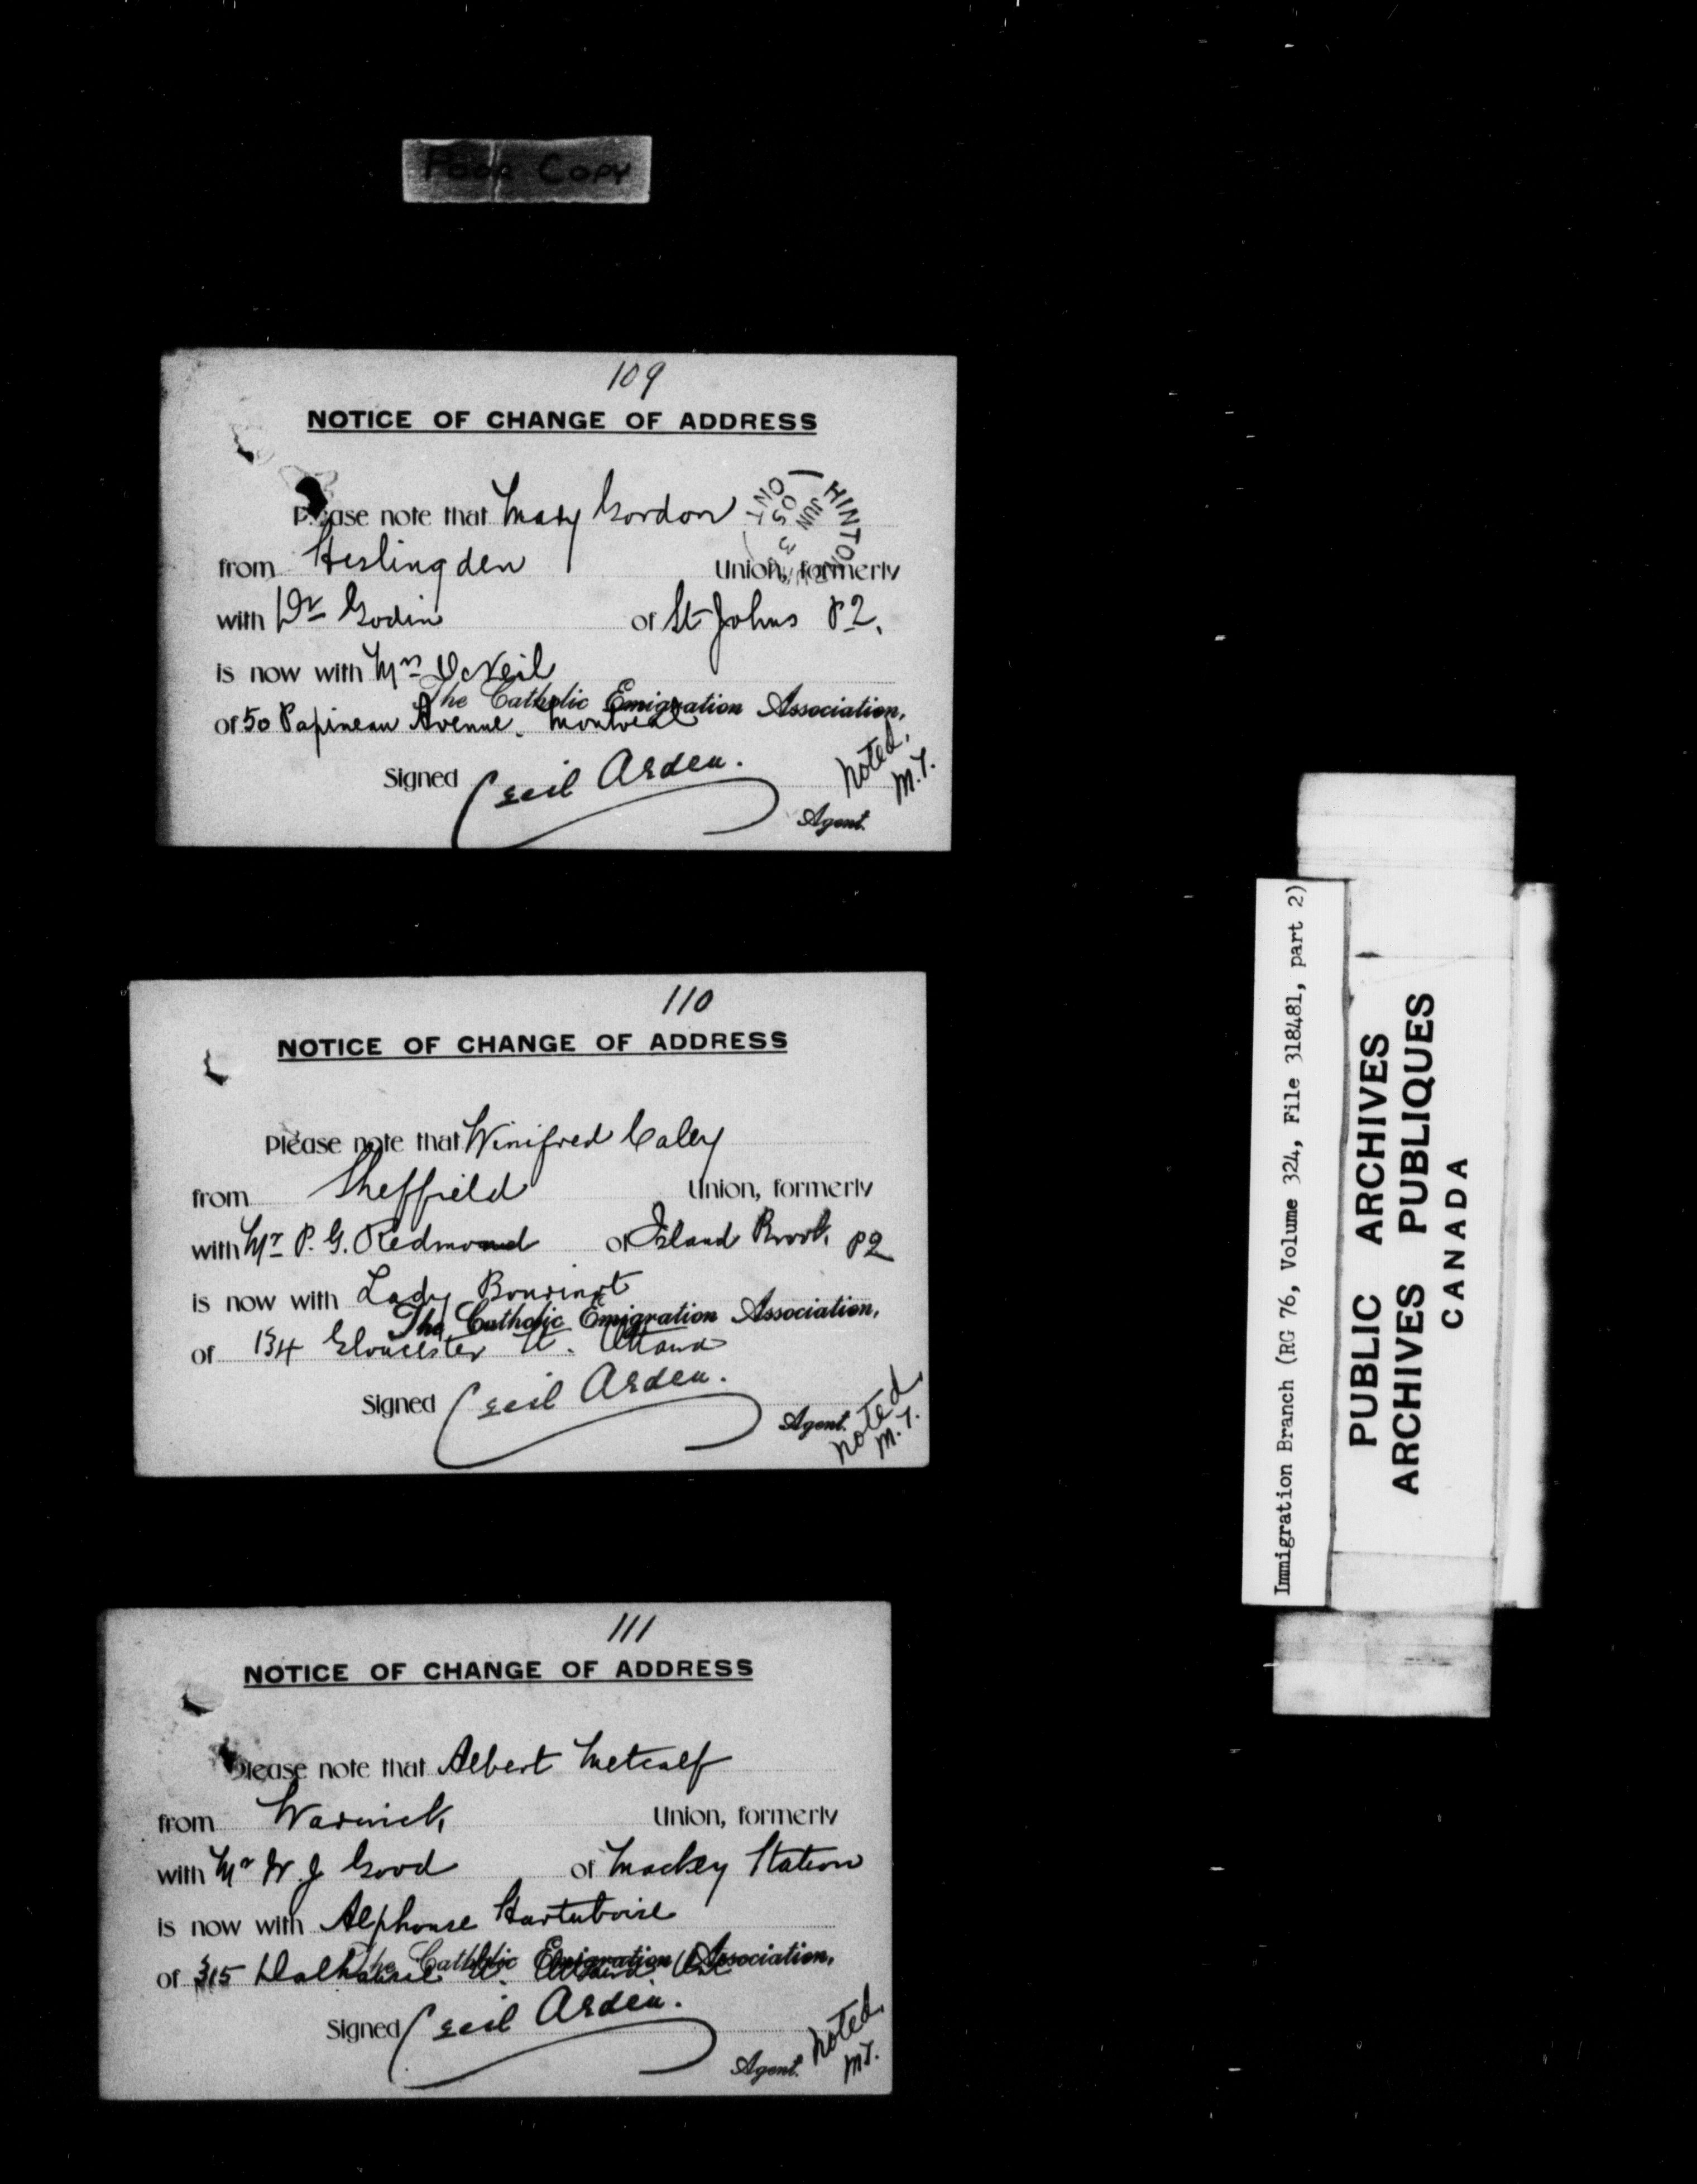 Poor Copy
109
NOTICE OF CHANGE OF ADDRESS
Please note that Mary Gordon
HINTONBURG JUN 3 05 ONT
from Heslingden Union, formerly
with Dr Godin of St Johns P2.
is now with Mrs McNeil
The Catholic Emigration Association,
of 50 Papineau Avenue. Montreal
Signed Cecil Arden.
Agent.
Noted, M.T.
110
NOTICE OF CHANGE OF ADDRESS
Please note that Winifred Caley
from Sheffield Union, formerly
with Mr P. G. Redmond of Island Brook P2
is now with Lady Bourinot
The Catholic Emigration Association,
of 134 Gloucester St. Ottawa
Signed Cecil Arden.
Agent.
Noted, M.T.
111
NOTICE OF CHANGE OF ADDRESS
Please note that Albert Metcalf
from Warwick Union, formerly
with Mr W. J Good of Mackey Station
is now with Alphonse
The Catholic Emigration Association,
of 315 Dalhousie St. Ottawa. Ont
Signed Cecil Arden.
Agent.
Noted, M.T.
Immigration Branch (RG 76, Volume 324, File 318481, part 2)
PUBLIC ARCHIVES
ARCHIVES PUBLIQUES
CANADA